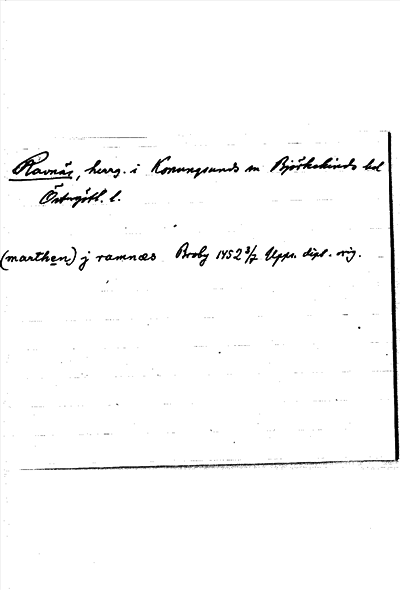 Ravnäs, herrg. i Konungsunds sn Björkekinds hd
Östergötl. l.
(marthen) j ramnæs Broby 1452 3/7 Upps. dipl. orig.